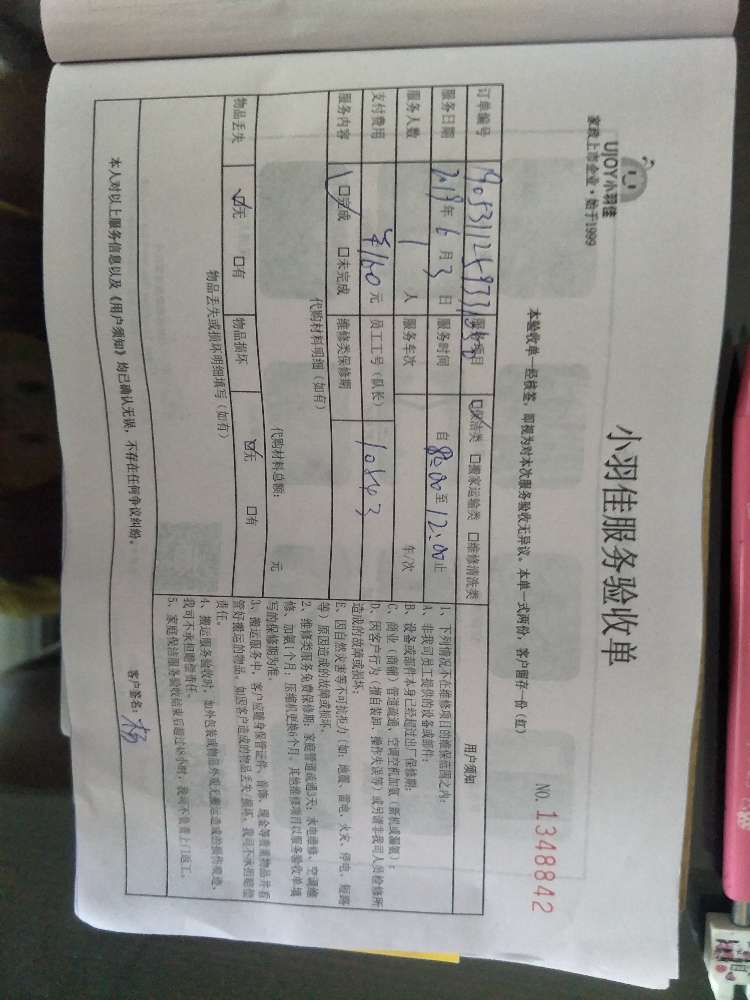 UJOY小羽佳
家政上市企业·始于1999
小羽佳服务验收单
NO. 1348842
本验收单一经核签，即视为对本次服务验收无异议。本单一式两份，客户留存一份（红）
订单编号
服务项目 ☑保洁类 □搬家运输类 □维修清洗类
服务日期 2019年6月3日 服务时间 自8:00至12:00止
服务人数 1人 服务车次 年/次
支付费用 ¥160元 员工工号（队长） 10843
服务内容 ☑完成 □未完成 维修类保修期
代购材料明细（如有）
代购材料总额： 元
物品丢失 ☑无 □有 物品损坏 ☑无 □有
物品丢失或损坏明细填写（如有）
用户须知
1、下列情况不在维修项目的维保范围之内：
A、非我司员工提供的设备或部件；
B、设备或部件本身已经超过出厂保修期；
C、商业（商铺）管道疏通、空调空机加氨（新机或漏氨）；
D、因客户行为（擅自装卸、操作失误等）或另请非我司人员检修所
造成的故障或损坏；
E、因自然灾害等不可抗拒力（如：地震、雷电、火灾、停电、短路
等）原因造成的故障或损坏。
2、维修类服务免费保修期：家庭管道疏通3天；水电维修、空调维
修、加氨1个月；压缩机更换6个月。其他维修项目以服务验收单填
写的保修期为准。
3、搬运服务中，客户应随身保管证件、首饰、现金等贵重物品并看
管好搬运的物品。如因客户造成的物品丢失/损坏，我司不承担赔偿
责任。
4、搬运服务验收时，如外包装或物品外观无搬运造成的损伤痕迹，
我司不承担赔偿责任。
5、家庭保洁服务验收结束后超过48小时，我司不负责上门返工。
本人对以上服务信息以及《用户须知》均已确认无误，不存在任何争议纠纷。
客户签名：杨